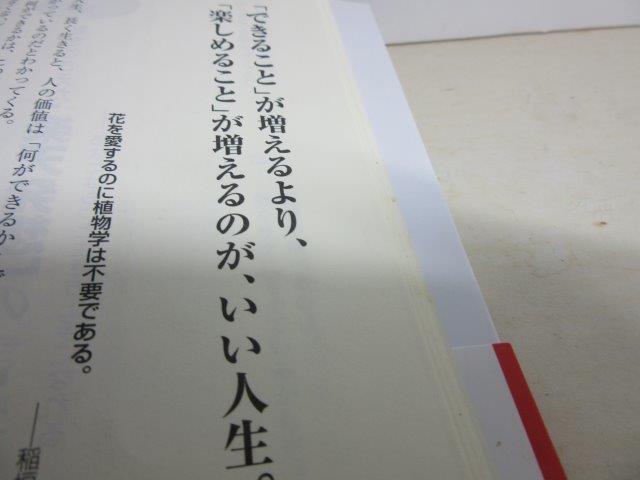 「できること」が増えるより、
「楽しめること」が増えるのが、いい人生。
花を愛するのに植物学は不要である。
——稲垣
生、長く生きると、人の価値は「何ができるか」で
っているのだとわかってくる。